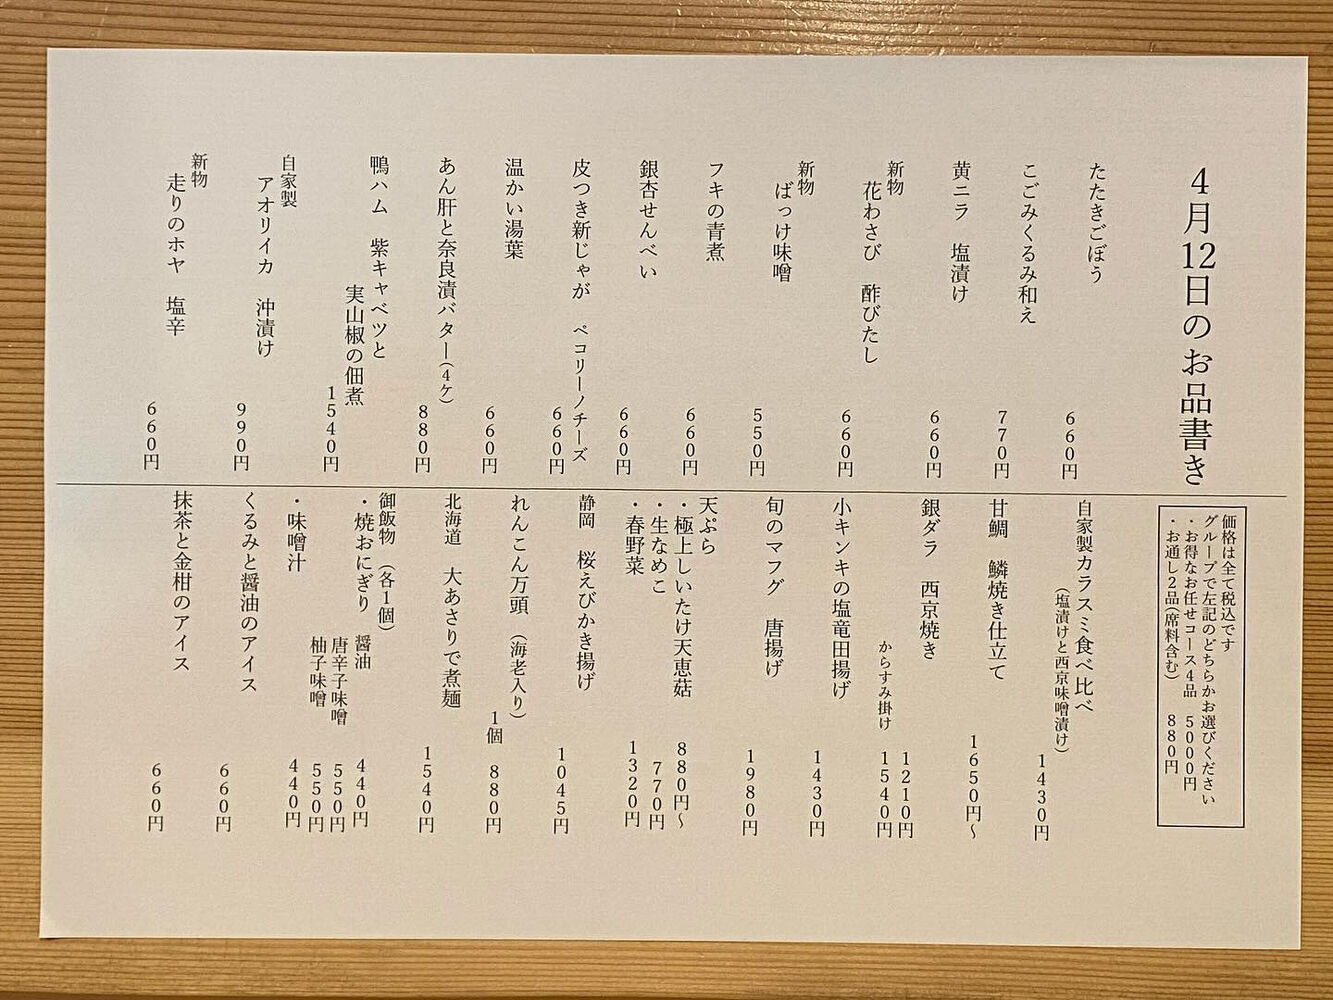 4月12日のお品書き
たたきごぼう
660円
こごみくるみ和え
770円
黄ニラ 塩漬け
660円
新物
花わさび 酢びたし
660円
新物
ばっけ味噌
550円
フキの青煮
660円
銀杏せんべい
660円
皮つき新じゃが ペコリーノチーズ
660円
温かい湯葉
660円
あん肝と奈良漬バター(4ケ)
880円
鴨ハム 紫キャベツと
実山椒の佃煮
1540円
自家製
アオリイカ 沖漬け
990円
新物
走りのホヤ 塩辛
660円
価格は全て税込です
グループで左記のどちらかお選びください
・お得なお任せコース4品 5000円
・お通し2品(席料含む) 880円
自家製カラスミ食べ比べ
(塩漬けと西京味噌漬け)
1430円
甘鯛 鱗焼き仕立て
1650円〜
銀ダラ 西京焼き
1210円
からすみ掛け 1540円
小キンキの塩竜田揚げ
1430円
旬のマフグ 唐揚げ
1980円
天ぷら
・極上しいたけ天恵菇 880円〜
・生なめこ 770円
・春野菜 1320円
静岡 桜えびかき揚げ
1045円
れんこん万頭(海老入り)
1個 880円
北海道 大あさりで煮麺
1540円
御飯物(各1個)
・焼おにぎり 醤油 440円
唐辛子味噌 550円
柚子味噌 550円
・味噌汁 440円
くるみと醤油のアイス
660円
抹茶と金柑のアイス
660円